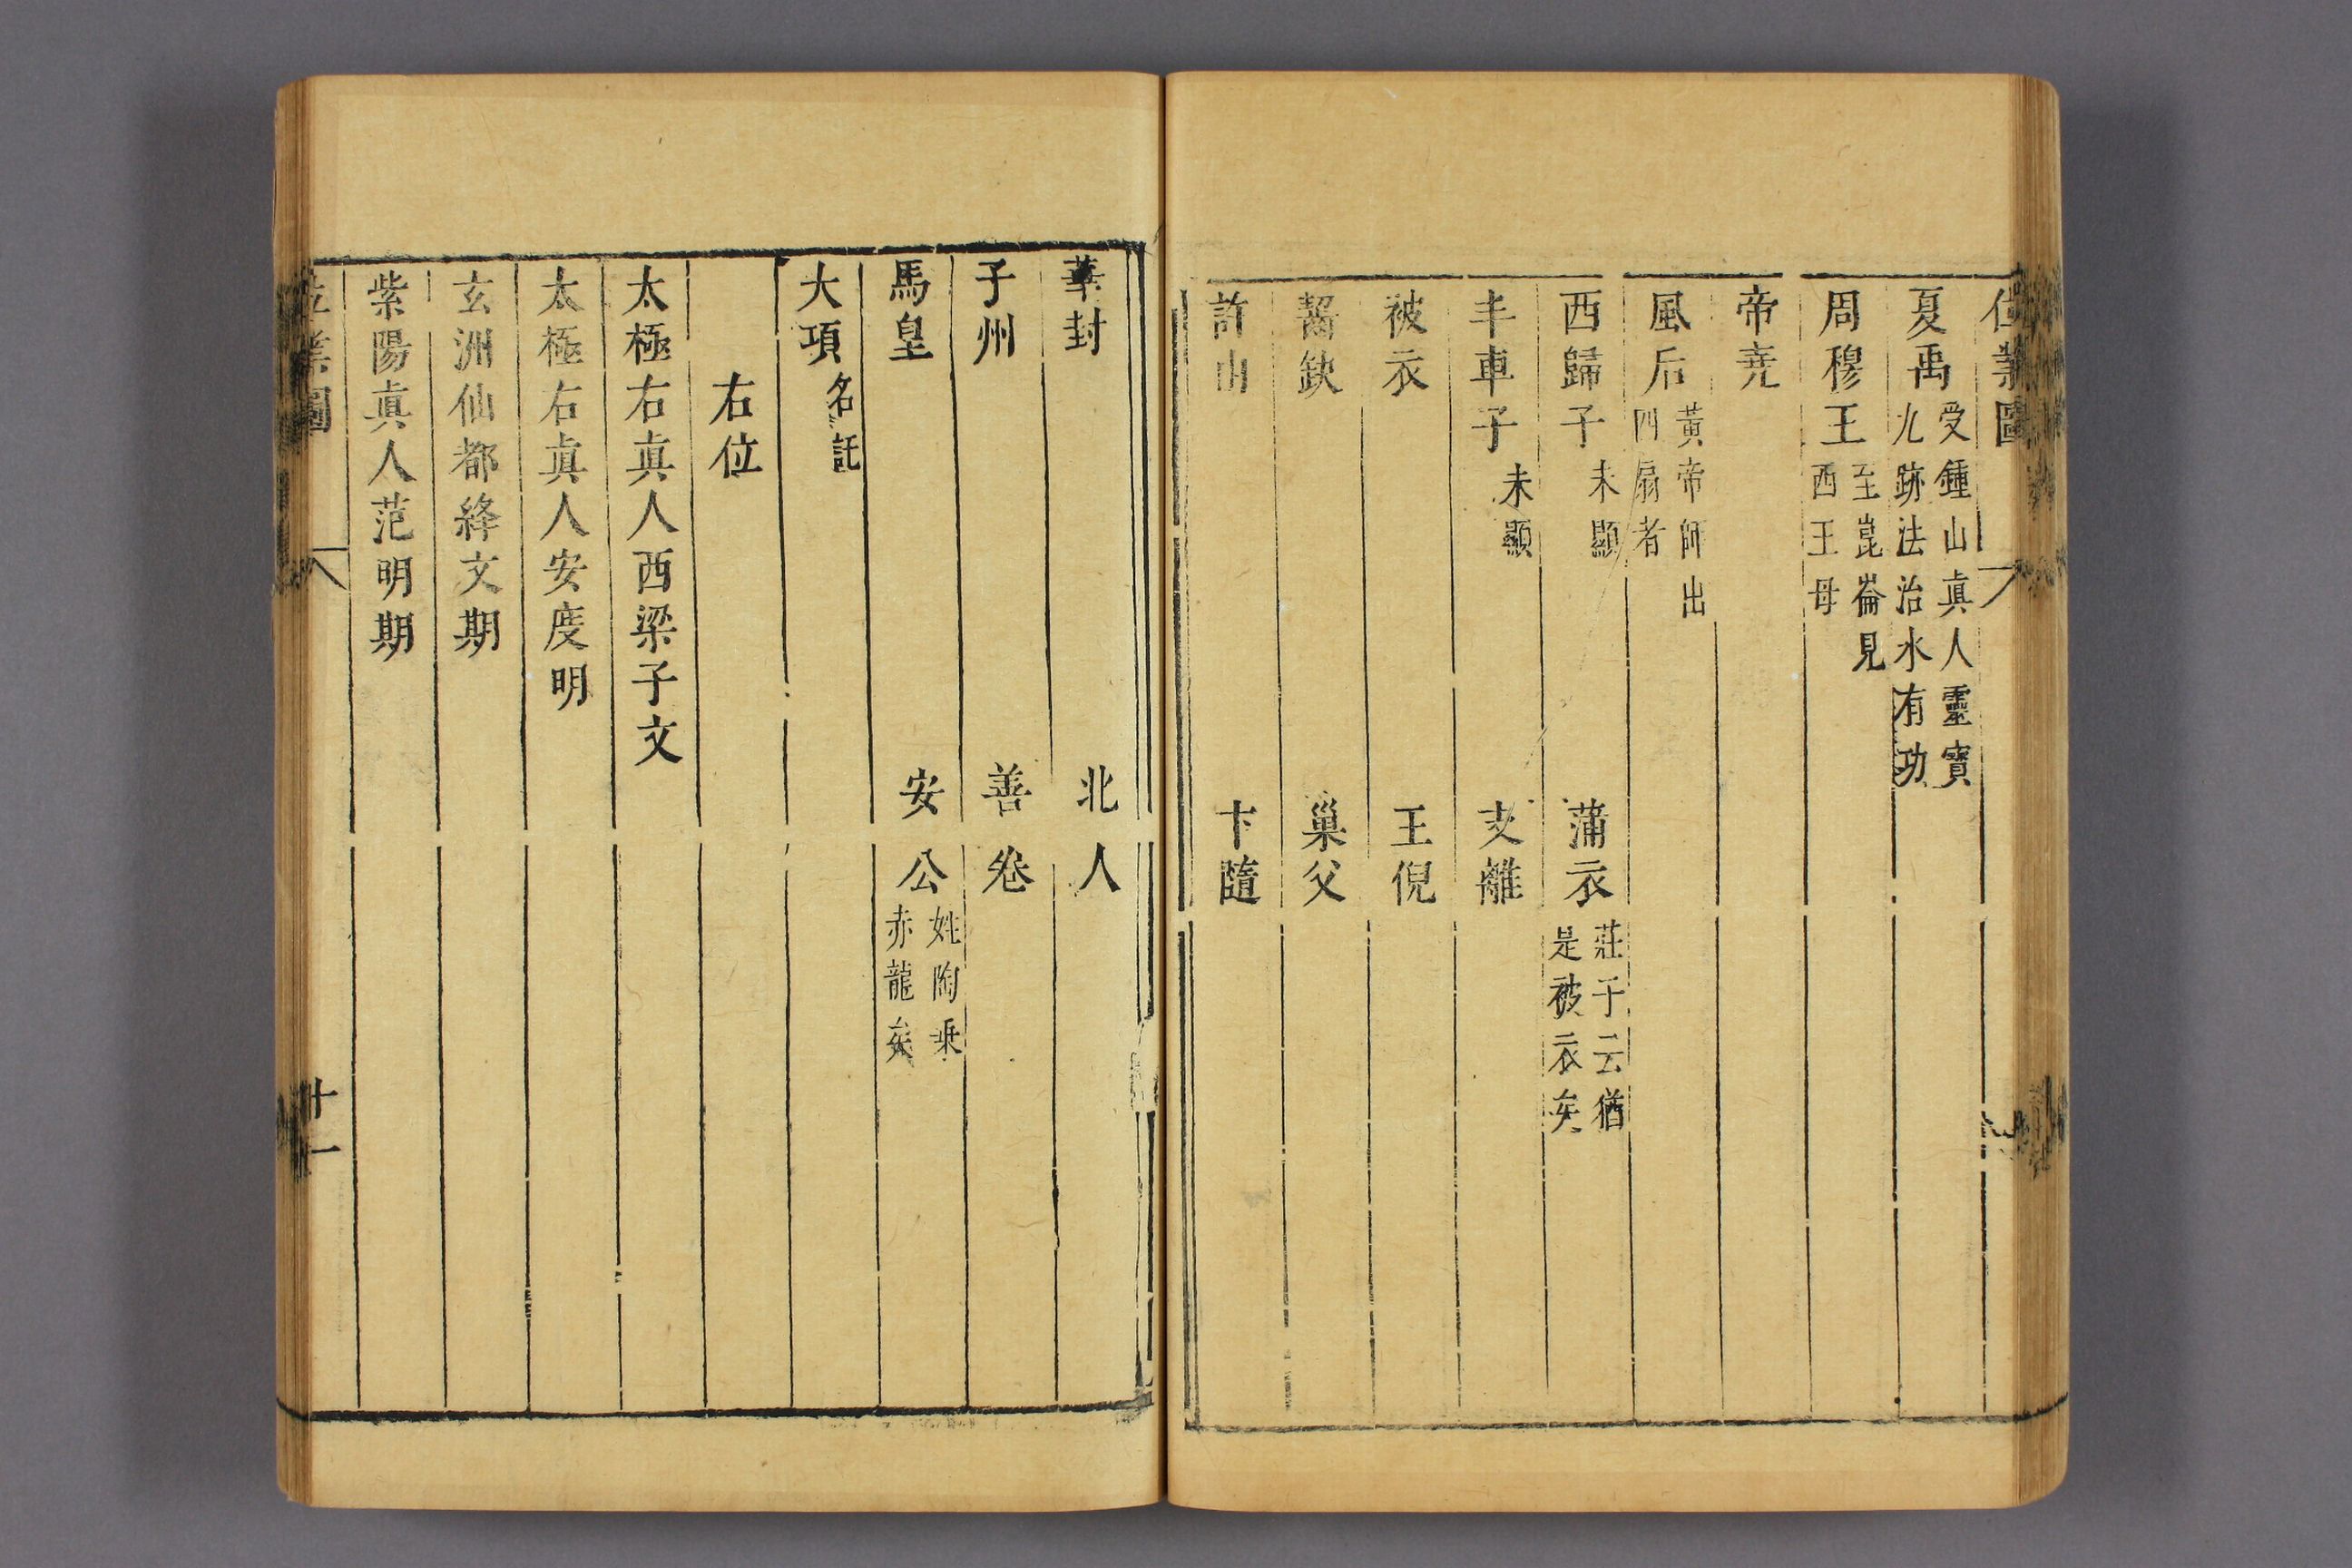 位業圖
夏禹 受鍾山眞人靈寶 九跡法治水有功
周穆王 至崑崙見 西王母
帝堯
風后 黃帝師出 四扇者
西歸子 未顯 蒲衣 莊子云猶 是被衣矣
丰車子 未顯 支離
被衣 王倪
齧缺 巢父
許由 卞隨
華封 北人
子州 善卷
馬皇 安公 姓陶乗 赤龍矣
大項 名託
右位
太極右眞人西梁子文
太極右眞人安度明
玄洲仙都絳文期
紫陽眞人范明期
業圖 十一